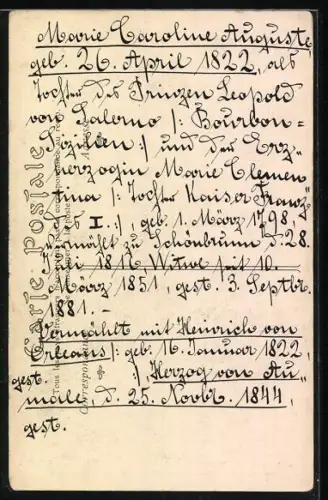 Marie Caroline Auguste,
geb. 26. April 1822, als
Tochter des Prinzen Leopold
von Salerno |: Bourbon=
Sizilien :| und der Erz=
herzogin Marie Clemen=
tina |: Tochter Kaiser Franz
des I. :|, geb. 1. März 1798,
vermählt zu Schönbrunn d. 28.
Juli 1816 Witwe seit 10.
März 1851, gest. 3. Septbr.
1881. –
Vermählt mit Heinrich von
Orleans |: geb. 16. Januar 1822,
gest. :|, "Herzog von Au=
male", d. 25. Novbr. 1844,
gest.
Carte Postale
Correspondance